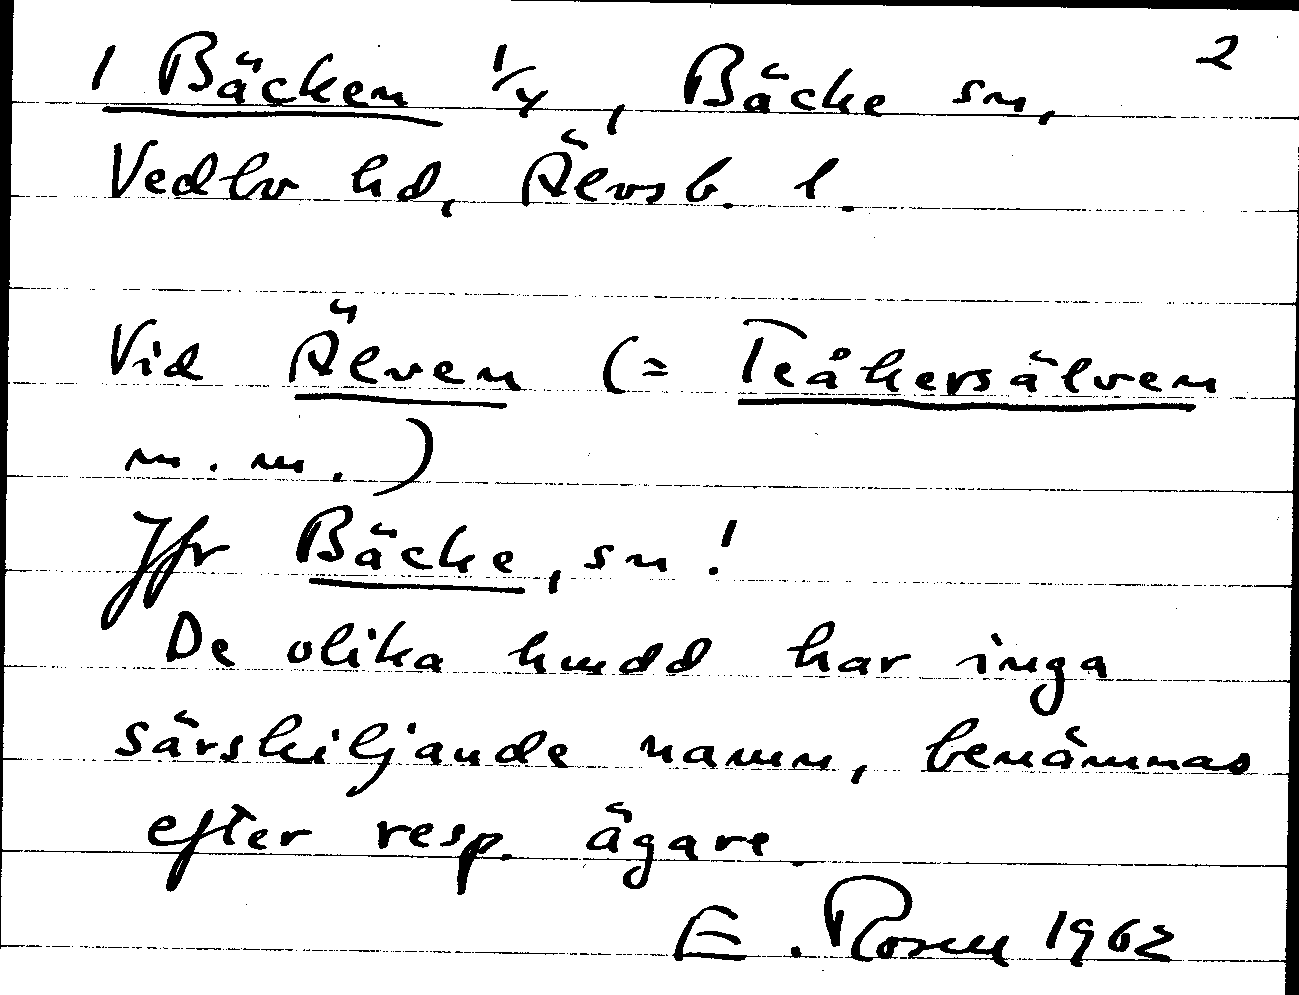 1 Bäcken 1/4, Bäcke sn, 2
Vedbo hd, Älvsb. l.
Vid Älven (= Teåkersälven
m.m.)
Jfr Bäcke, sn!
De olika hmdd har inga
särskiljande namn, benämnas
efter resp. ägare.
E. Rosell 1962